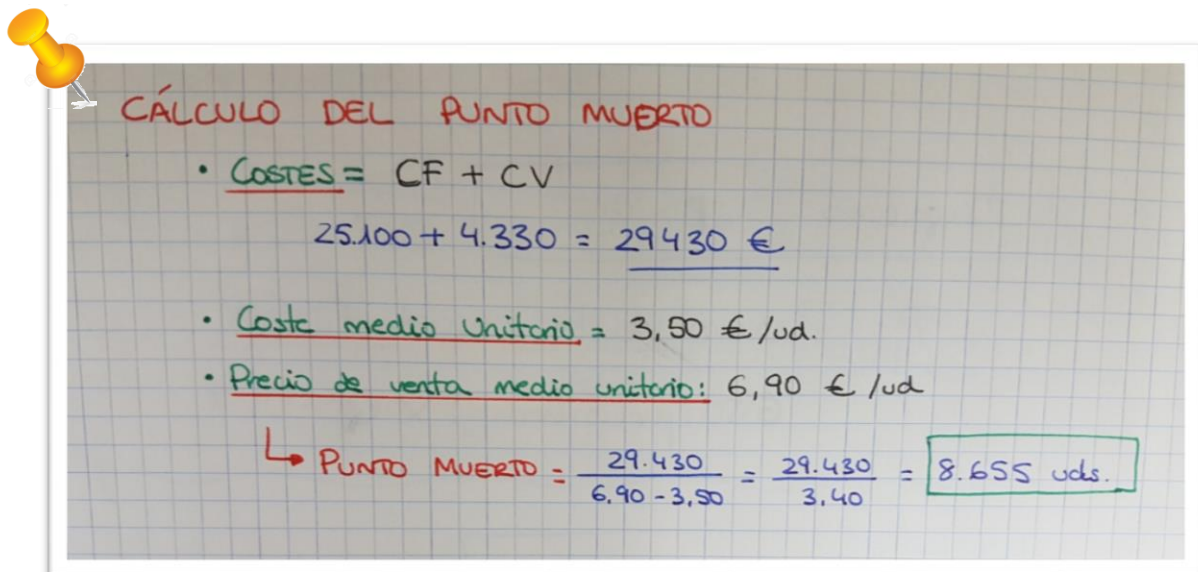 CÁLCULO DEL PUNTO MUERTO
• COSTES = CF + CV
25.100 + 4.330 = 29430 €
• Coste medio Unitario = 3,50 €/ud.
• Precio de venta medio unitario: 6,90 €/ud
PUNTO MUERTO = 29.430 / 6,90 - 3,50 = 29.430 / 3,40 = 8.655 uds.